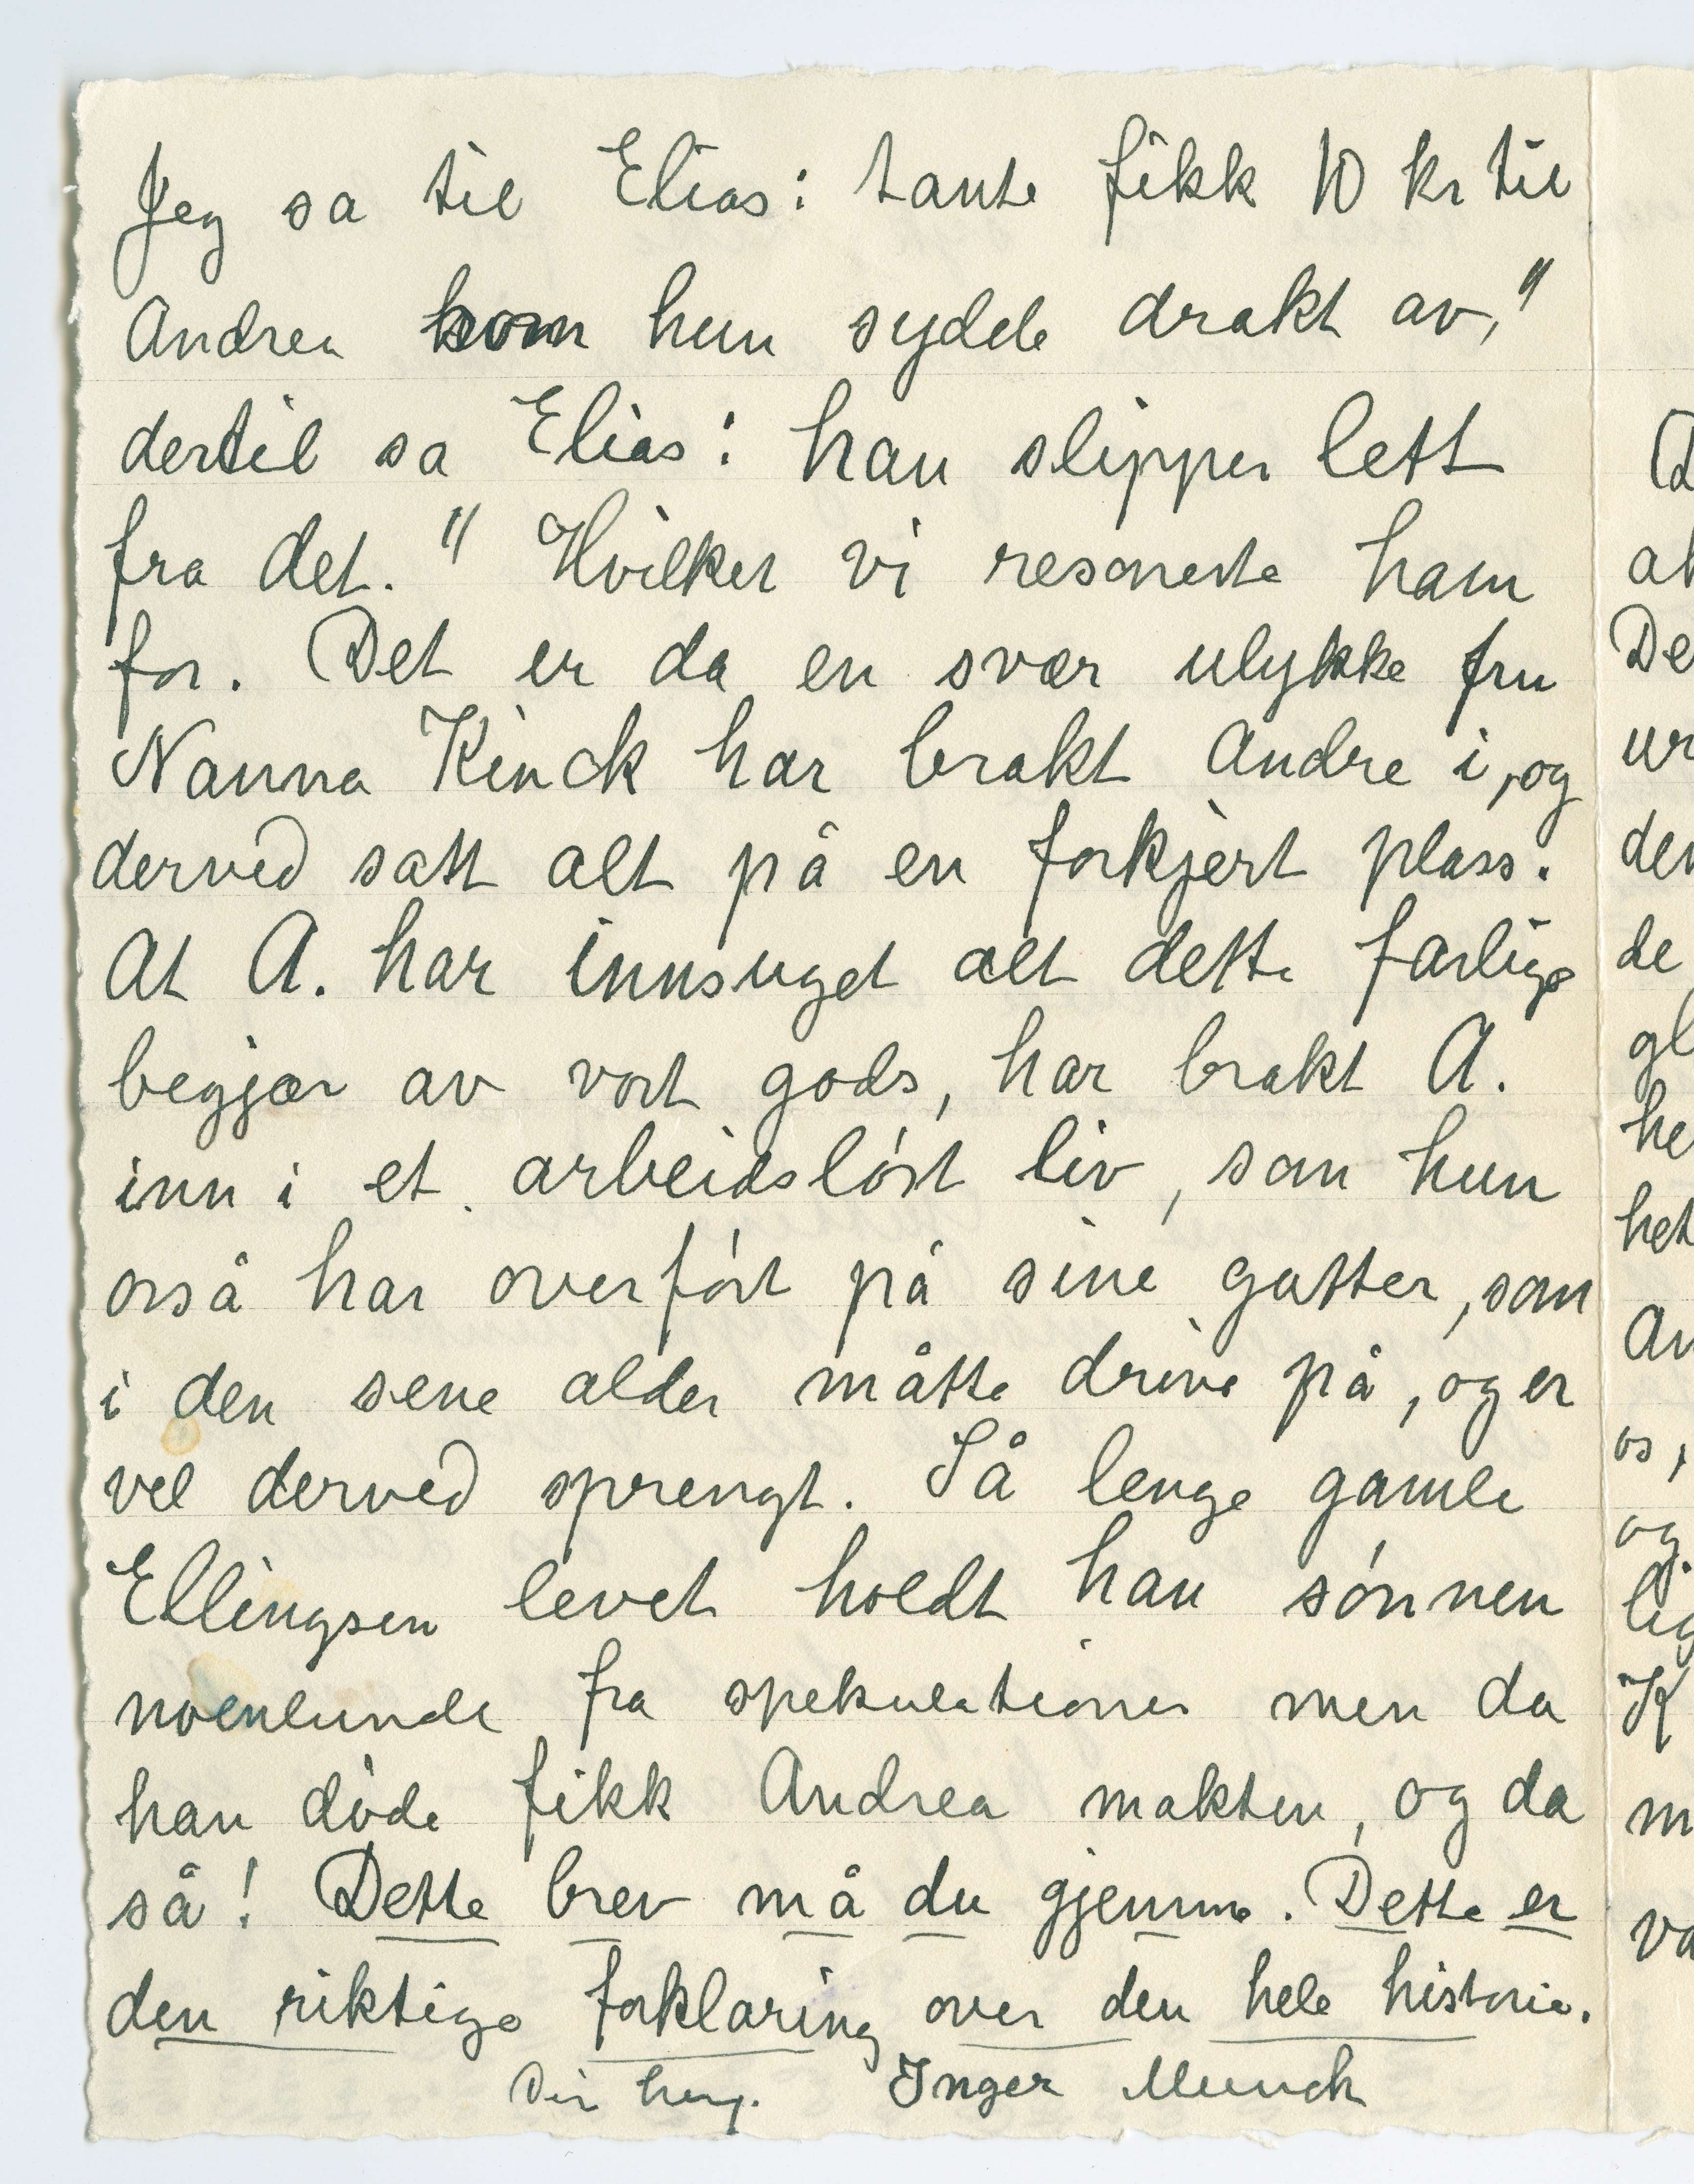 Jeg sa til Elias: tante fikk 10 kr til
Andrea som hun sydde drakt av,"
dertil sa Elias: han slipper lett
fra det." Hvilket vi resonerte ham
for. Det er da en svær ulykke fru
Nanna Kinck har brakt Andre i, og
derved satt alt på en forkjert plass.
At A. har innsuget alt dette farlige
begjær av vort gods, har brakt A.
inn i et arbeidsløst liv, som hun
også har overført på sine gutter, som
i den sene alder måtte drive på, og er
vel derved sprengt. Så lenge gamle
Ellingsen levet holdt han sønnen
noenlunde fra spekulationer men da
han døde fikk Andrea makten, og da
så! Dette brev må du gjemme. Dette er
den riktige forklaring over den hele historie.
Din heng. Inger Munch
De
ur
de
he
het
os,
og
K